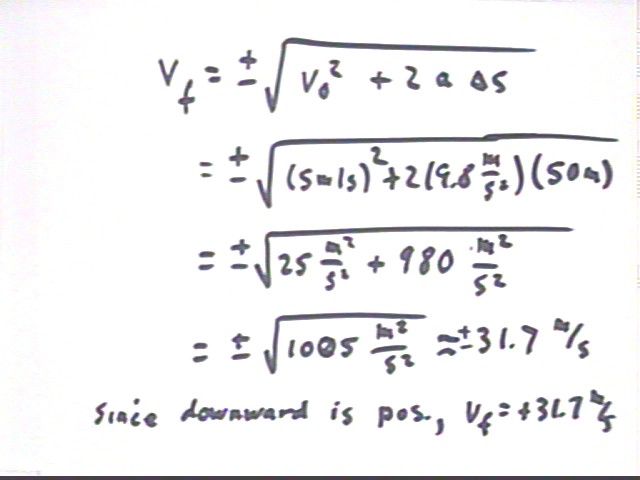 v_f = ± √(v₀² + 2 a Δs)
= ± √((5 m/s)² + 2(9.8 m/s²)(50 m))
= ± √(25 m²/s² + 980 m²/s²)
= ± √(1005 m²/s²) ≈ ± 31.7 m/s
Since downward is pos., v_f = +31.7 m/s